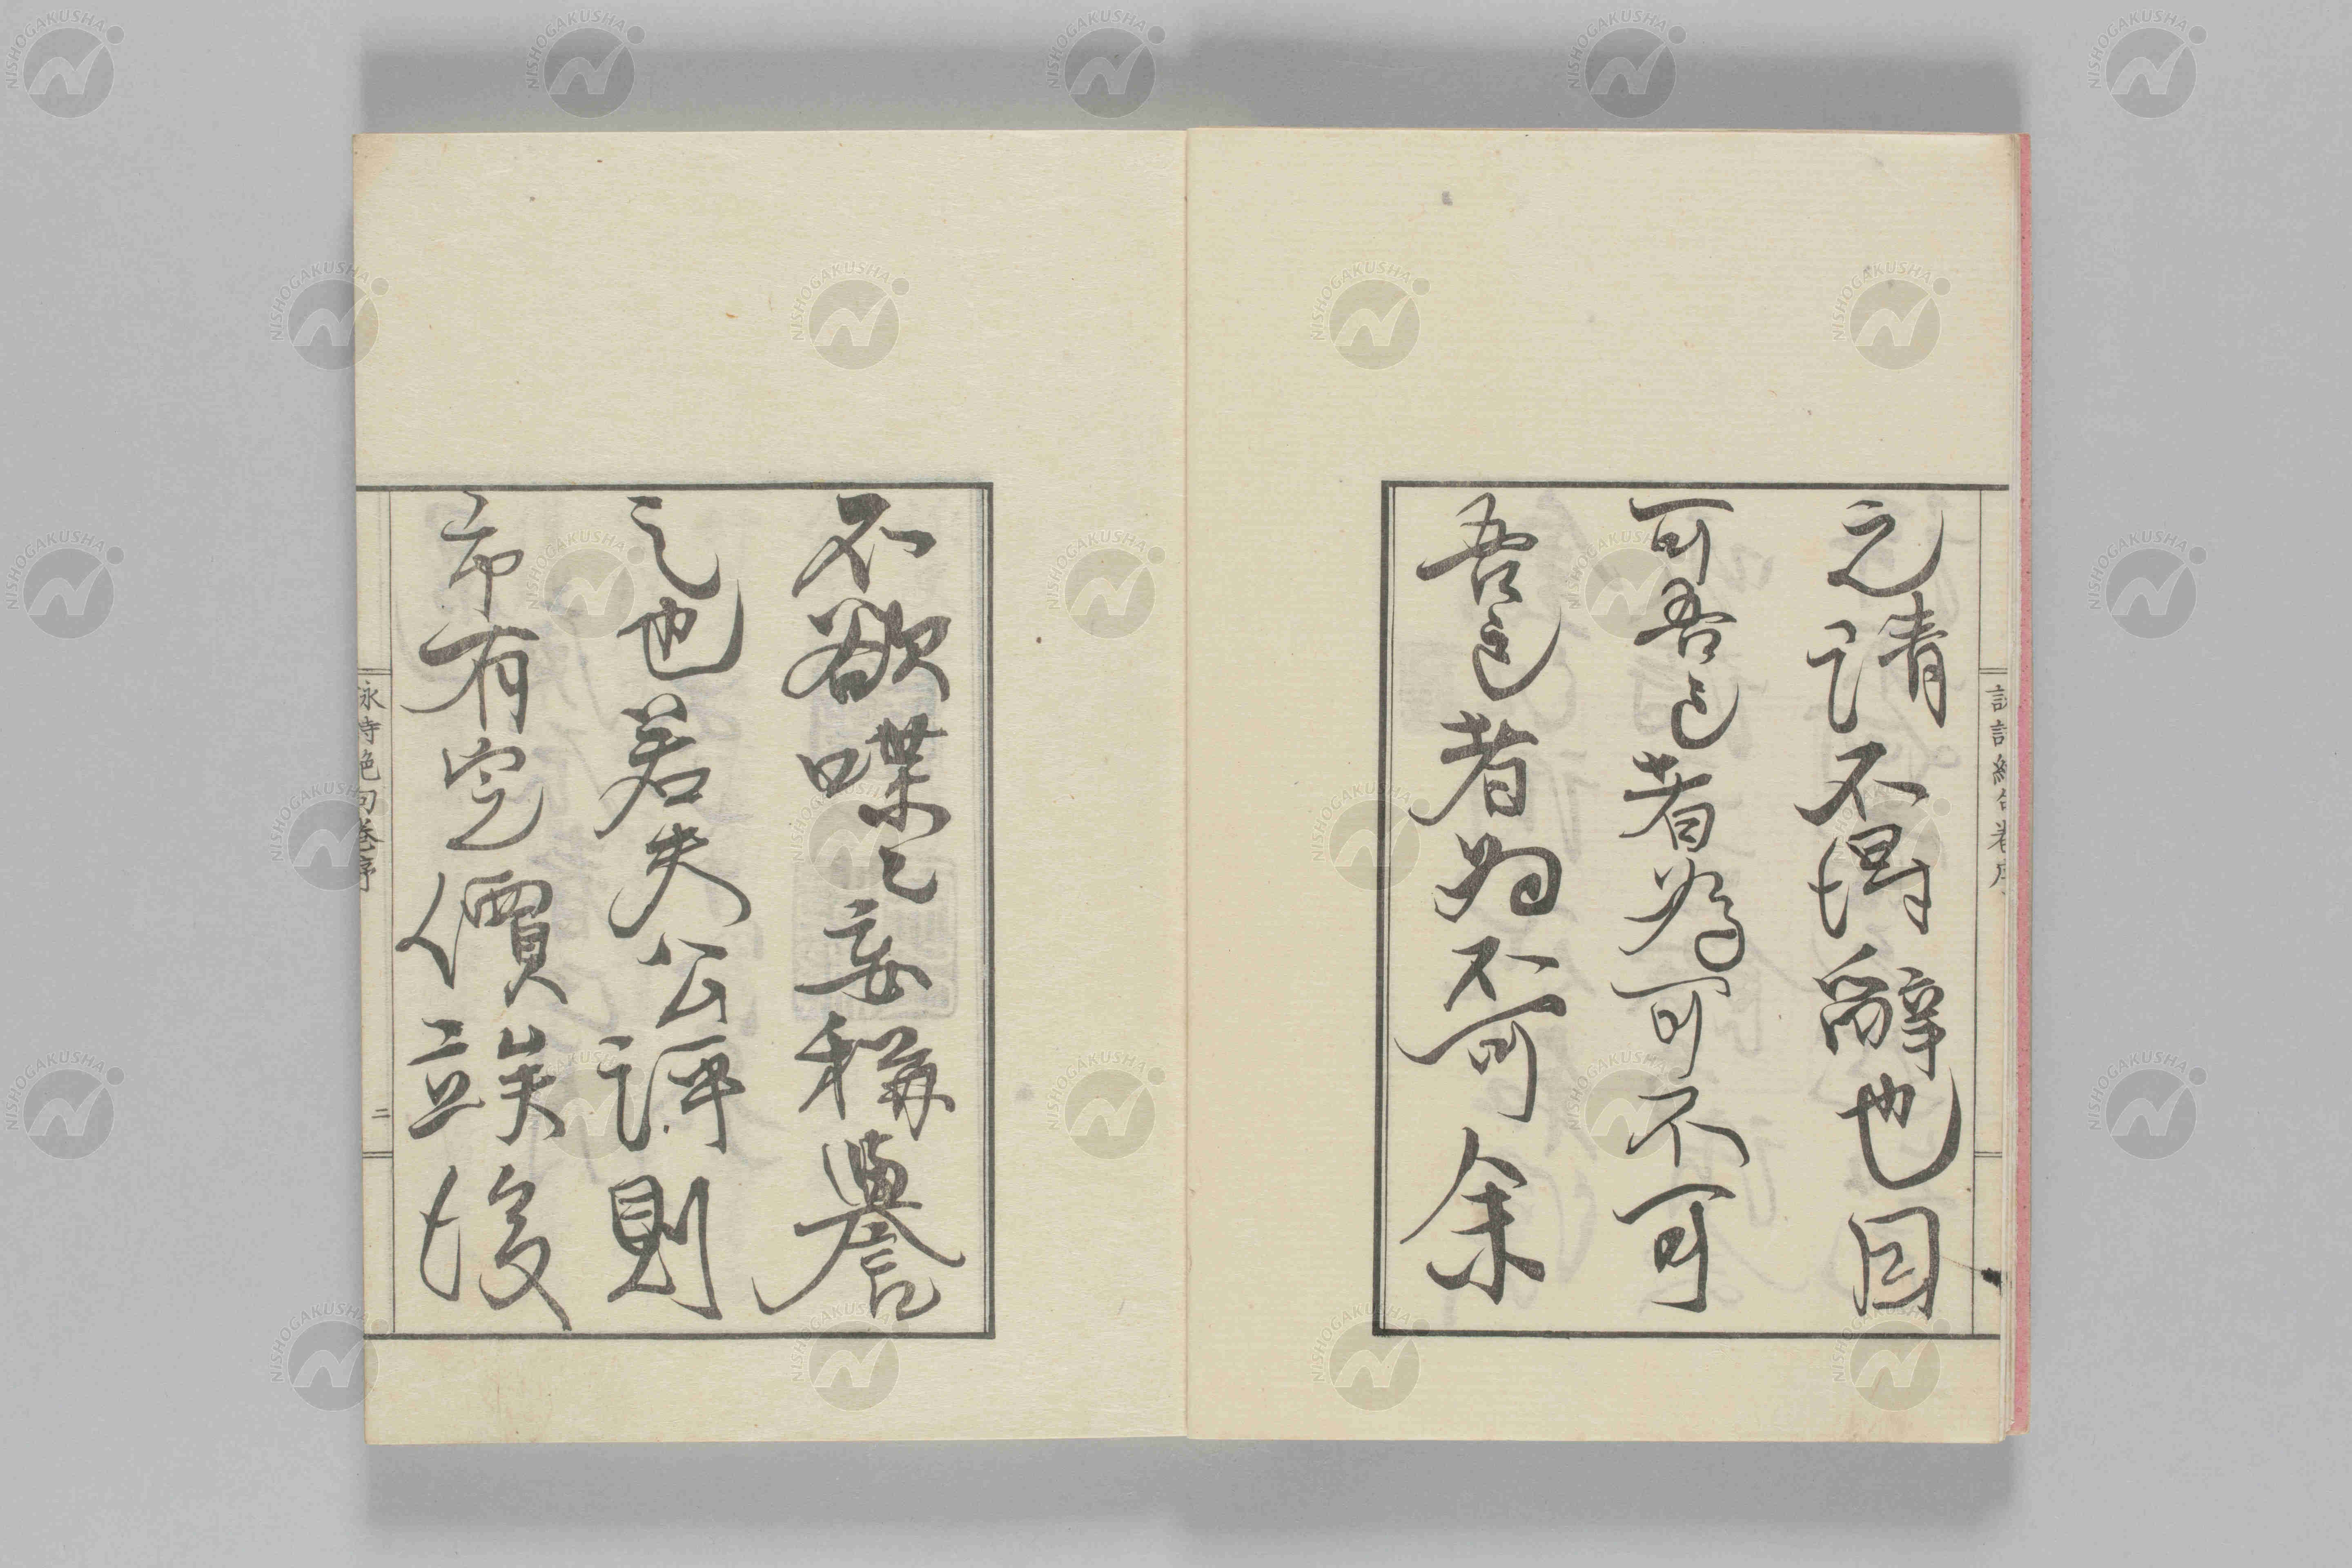 詠詩絶句卷序
之請不得辭也因
可吾已者為可不可
吾已者為不可余
不欲喋〻妄稱譽
之也若夫公評則
市有定價竢後
詠詩絶句卷序
二
NISHOGAKUSHA